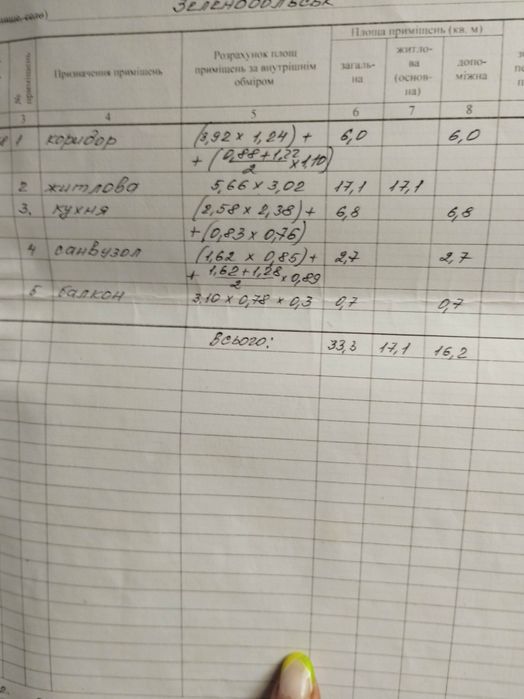 Зеленодольськ
село)
№ приміщень
Призначення приміщень
Розрахунок площ приміщень за внутрішнім обміром
Площа приміщень (кв. м)
загаль-
на
житло-
ва
(основ-
на)
допо-
міжна
3 4 5 6 7 8
1 коридор (3,92 x 1,24) + 6,0 6,0
+ (0,88+1,22/2 x 1,10)
2 житлова 5,66 x 3,02 17,1 17,1
3. кухня (2,58 x 2,38) + 6,8 6,8
+ (0,83 x 0,76)
4 санвузол (1,62 x 0,85) + 2,7 2,7
+ 1,62+1,28/2 x 0,89
5 балкон 3,10 x 0,78 x 0,3 0,7 0,7
Всього: 33,3 17,1 16,2